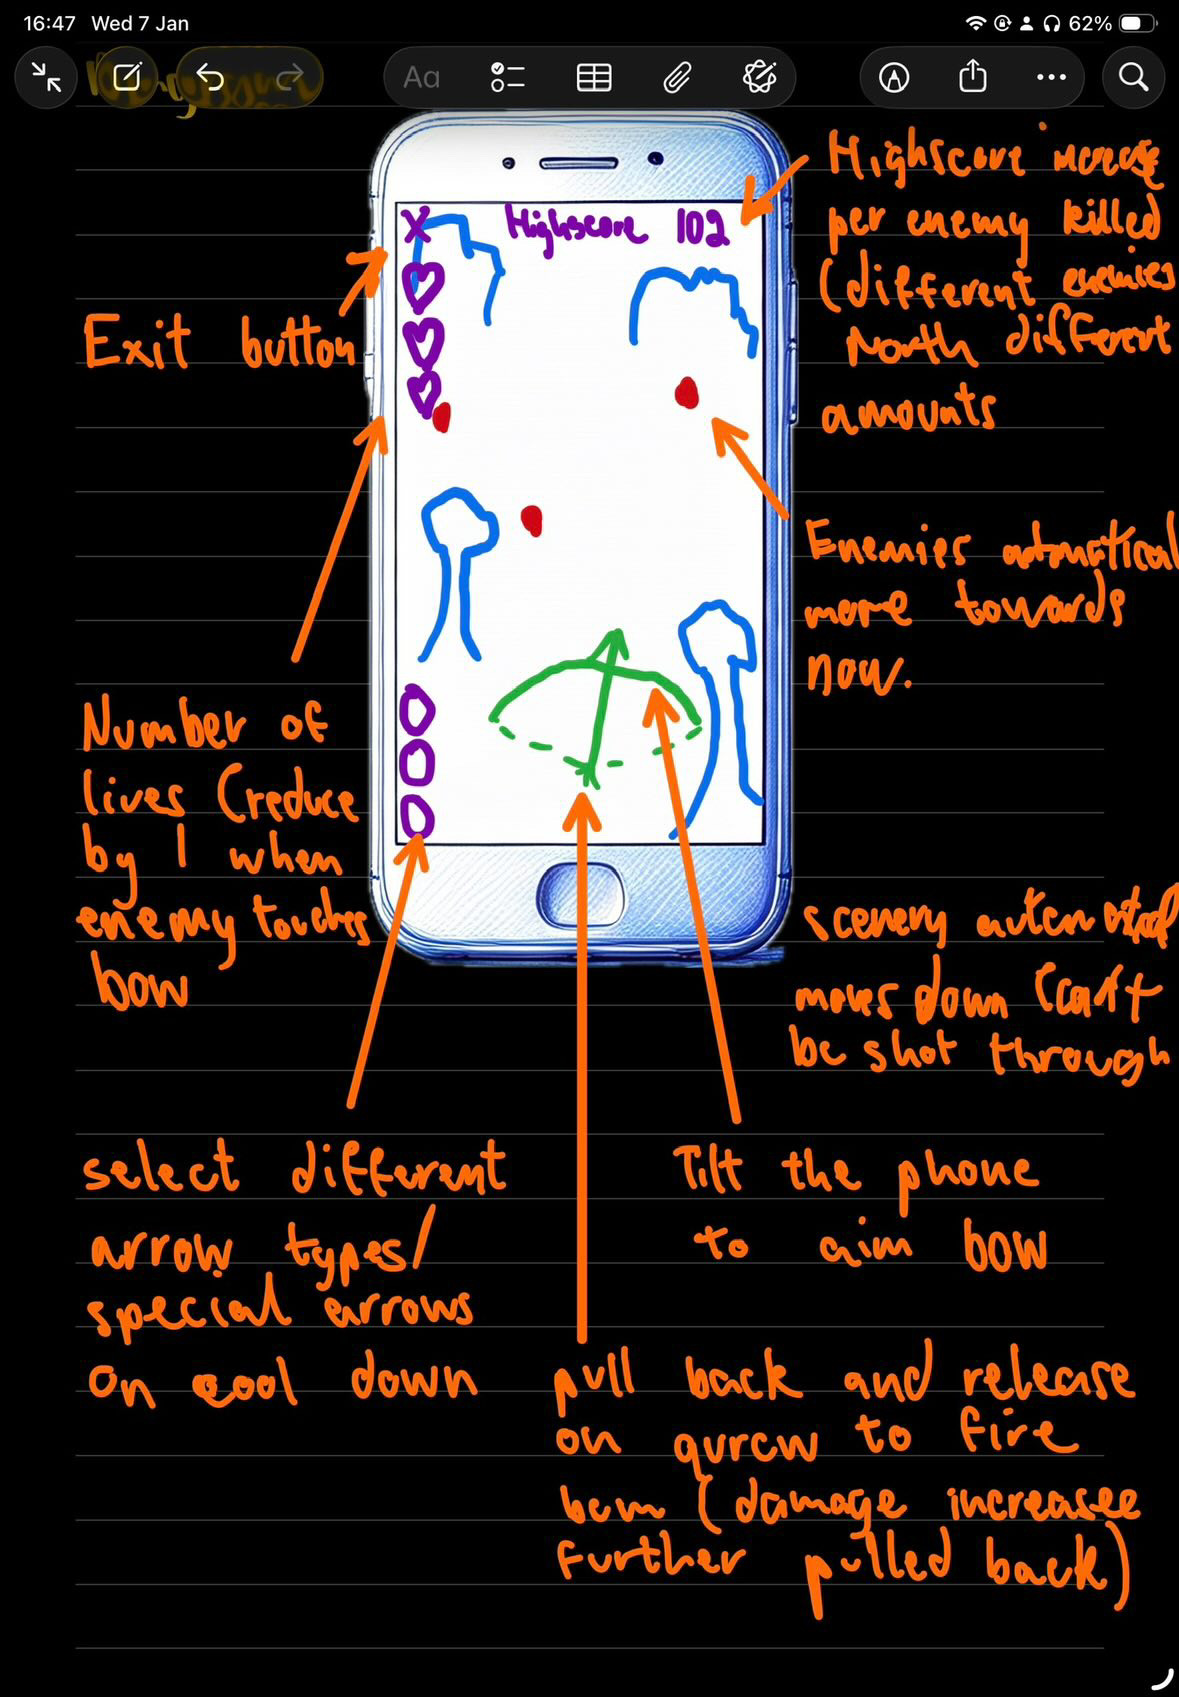 16:47 Wed 7 Jan
62%
Aa
X
Highscore 102
Highscore increase
per enemy killed
(different enemies
worth different
amounts
Exit button
Enemies automatical
move towards
now.
Number of
lives (reduce
by 1 when
enemy touches
bow
scenery
moves down (can't
be shot through
select different
arrow types/
special arrows
on cool down
Tilt the phone
to aim bow
pull back and release
on arrow to fire
bow (damage increases
further pulled back)